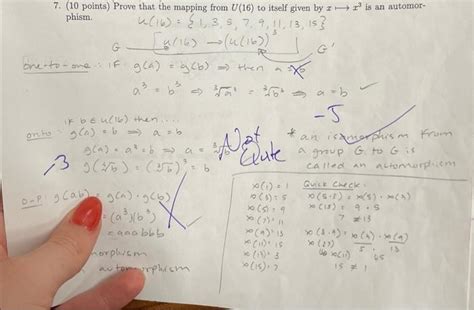 7. (10 points) Prove that the mapping from U(16) to itself given by x ↦ x³ is an automor-
phism.
U(16) = {1, 3, 5, 7, 9, 11, 13, 15}
G [U(16) → (U(16))³ G'
one-to-one: if g(a) = g(b) ⇒ then a = b
a³ = b³ ⇒ ∛a³ = ∛b³ ⇒ a = b
-5
if b ∈ U(16) then....
onto: g(a) = b ⇒ a = b
g(a) = a³ = b ⇒ a = ∛b
g(∛b) = (∛b)³ = b
Not Quite
* an isomorphism from
a group G to G is
called an automorphism
O.P: g(ab) = g(a)·g(b)
= (a³)(b³)
= aaabbb
morphism
automorphism
α(1) = 1
α(3) = 5
α(5) = 9
α(7) = 11
α(9) = 13
α(11) = 15
α(13) = 3
α(15) = 7
Quick Check:
α(3·5) = α(5)·α(3)
7 ≠ 13
α(3·9) = α(3)·α(9)
α(27) 5 · 13
α(11) 65
15 ≠ 1